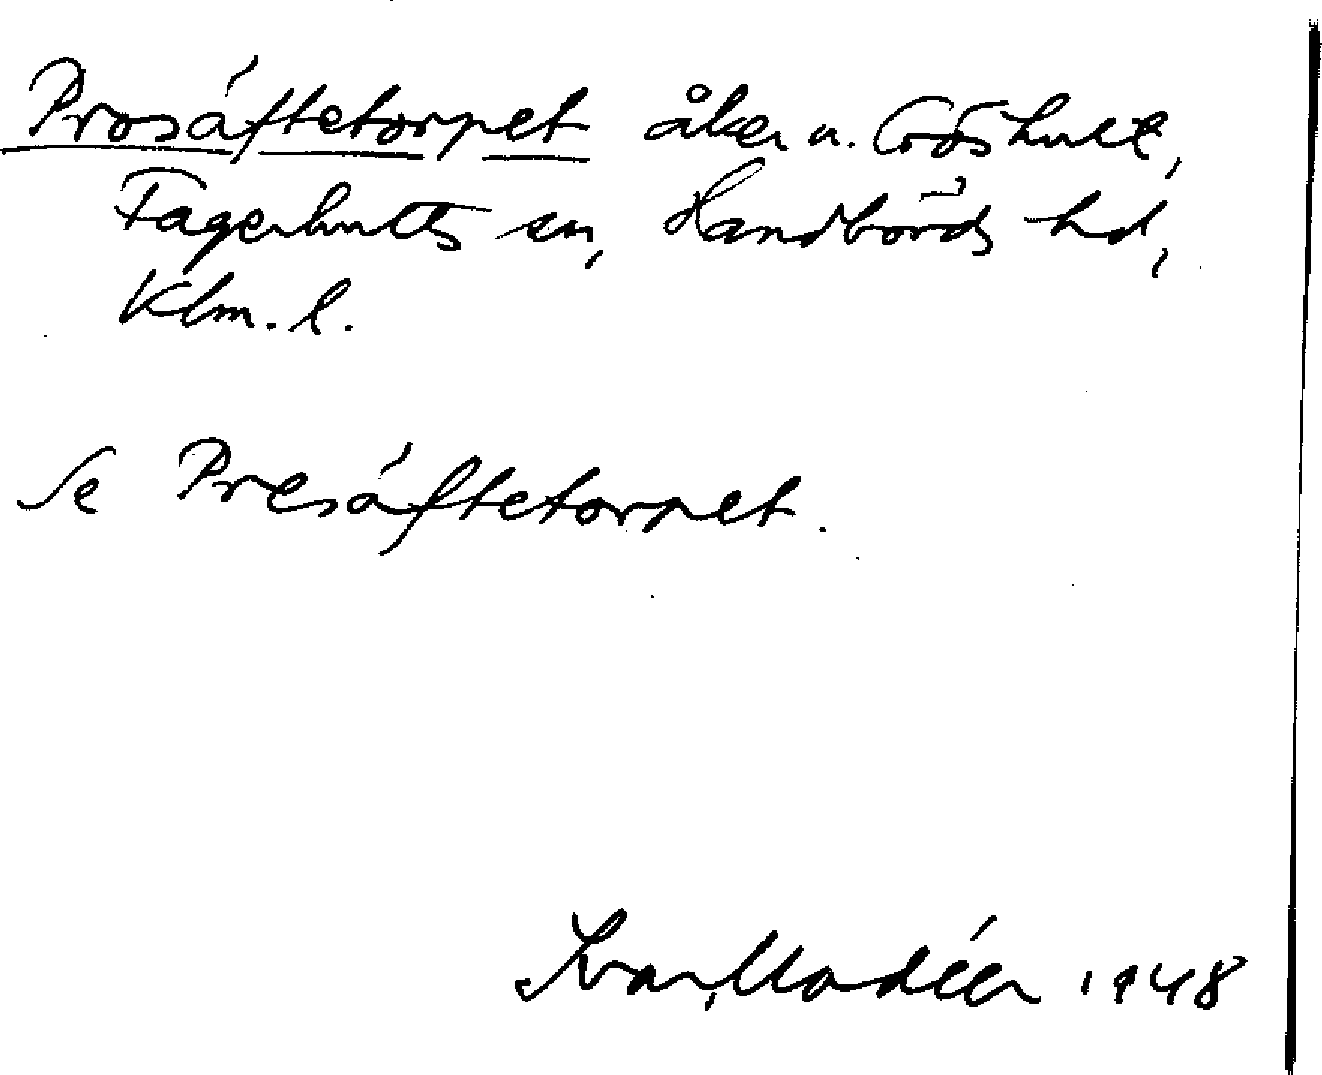 Prosáftetorpet åker u. Cröshult,
Fagerhults sn, Handbörds hd,
Klm. l.
Se Presáftetorpet.
Ivar Modéer 1948